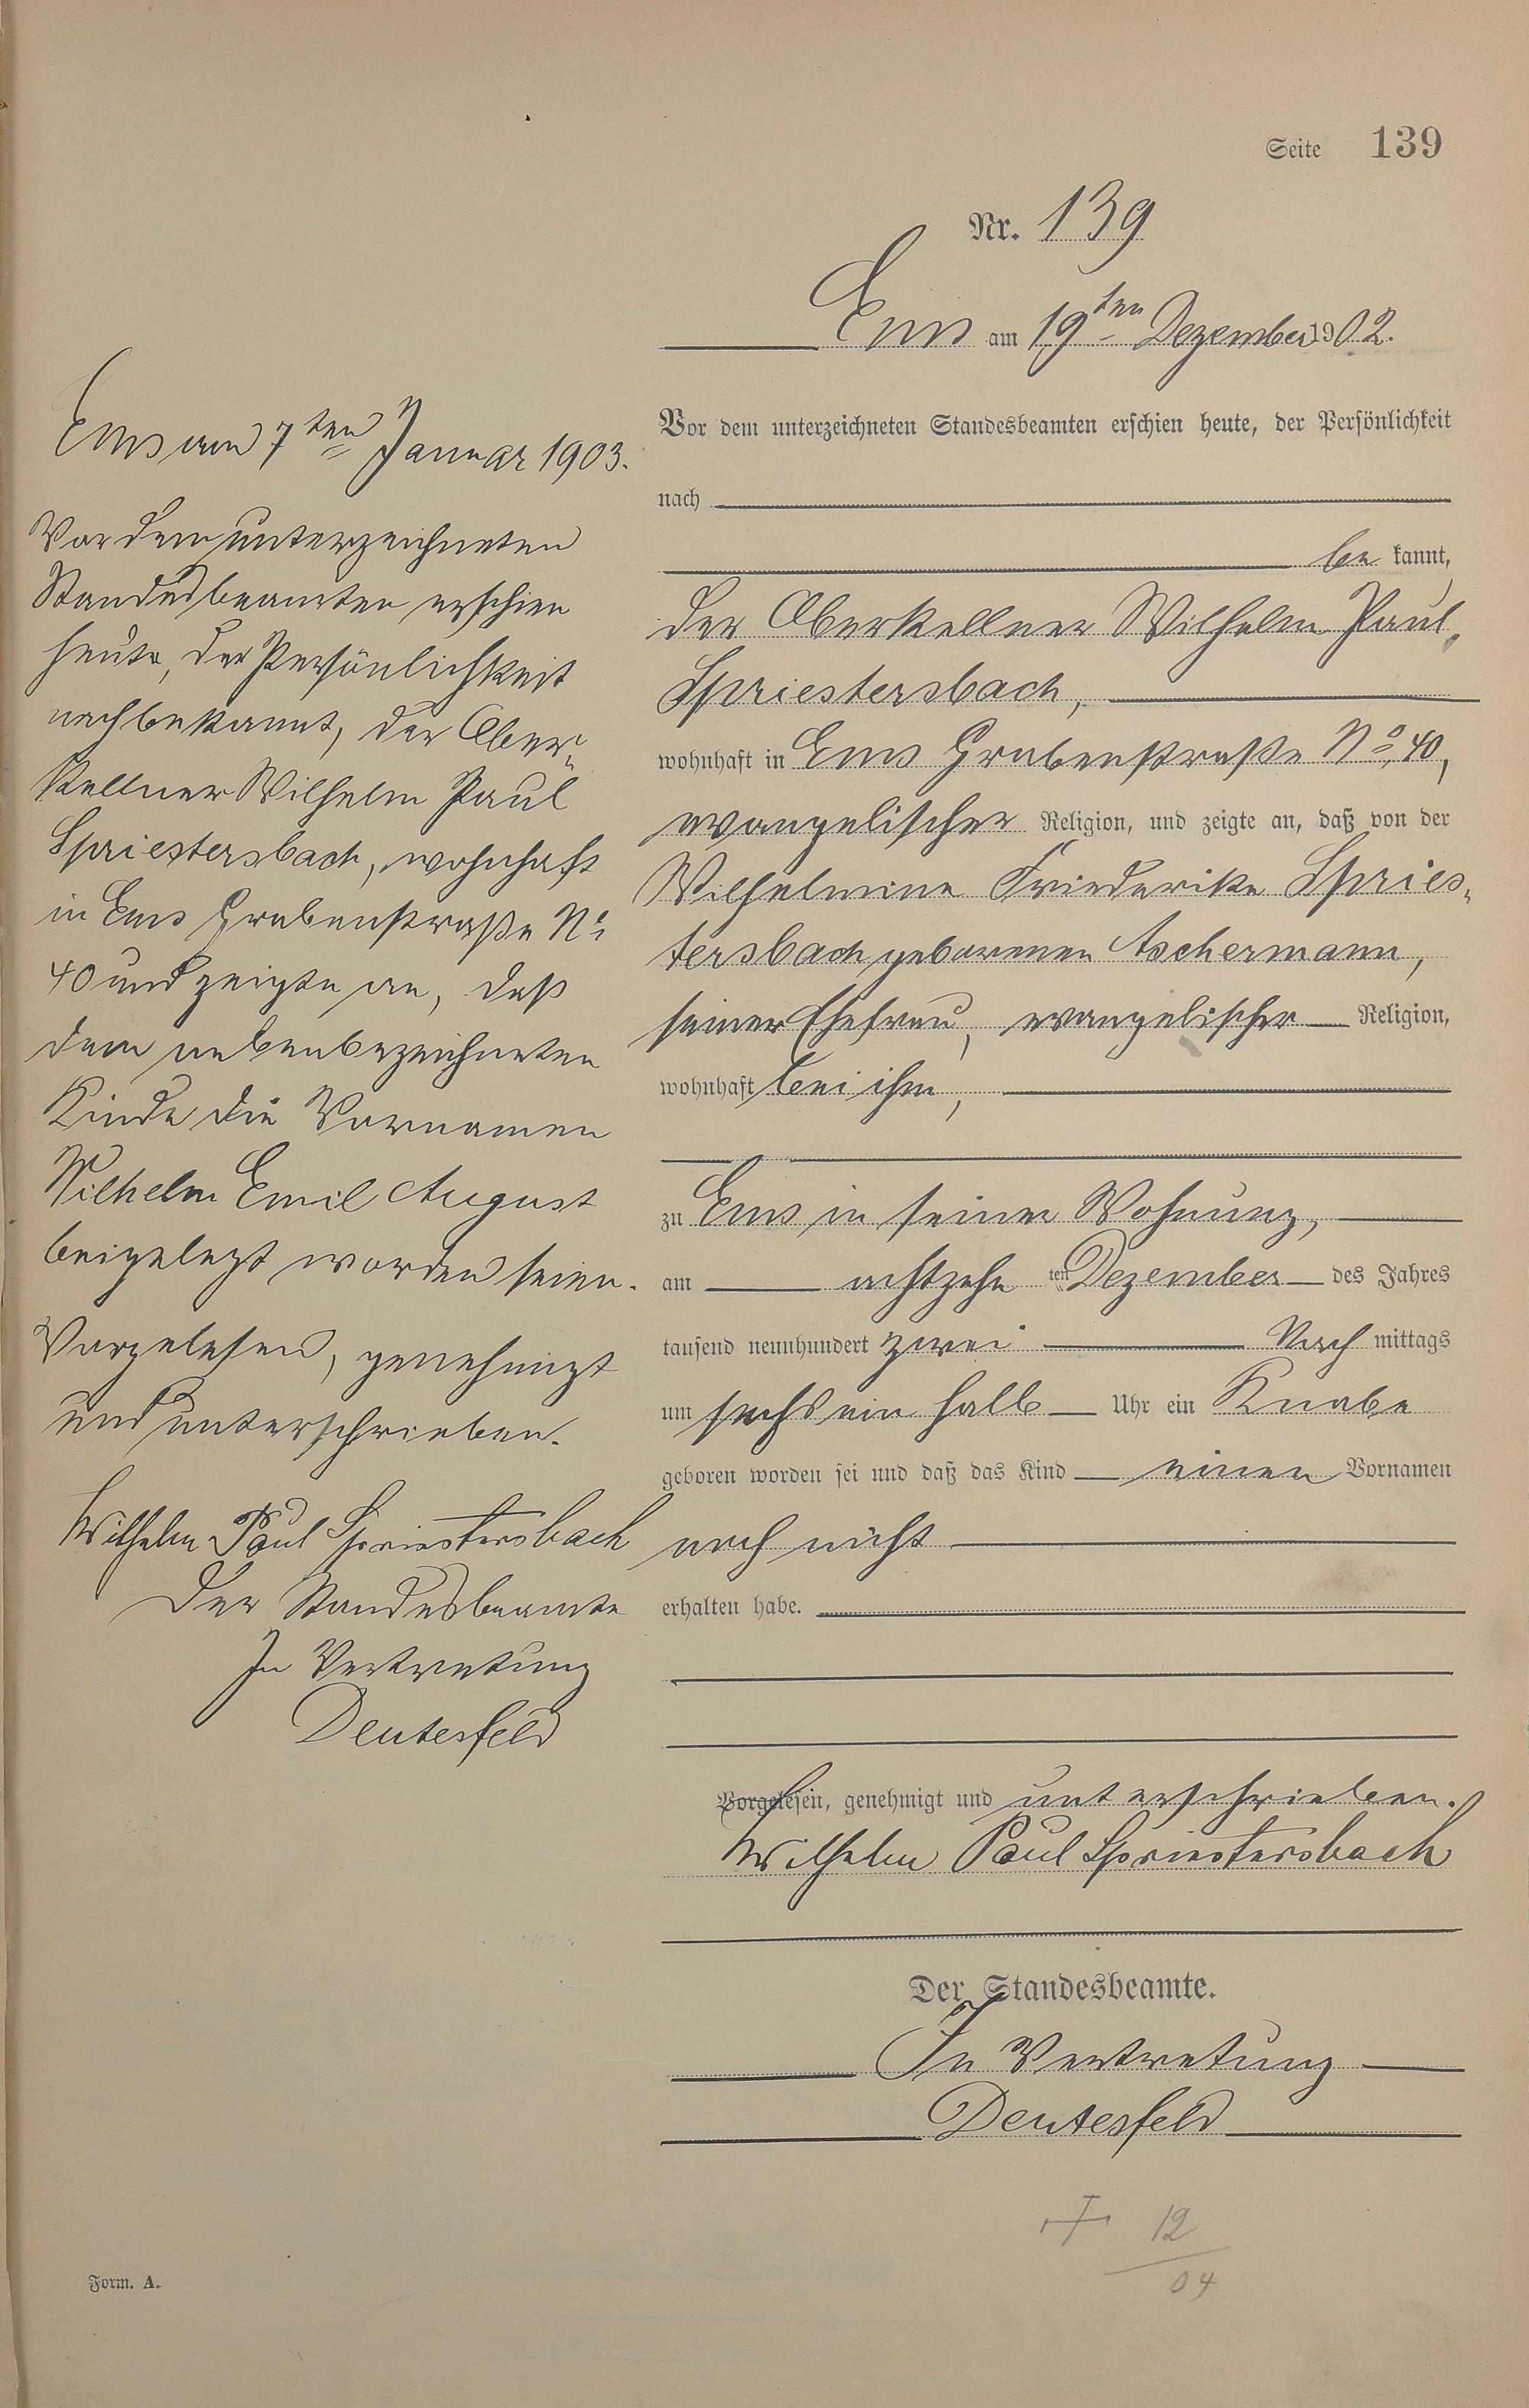 Seite 139
Nr. 139
Ems am 19ten Dezember 1902.
Vor dem unterzeichneten Standesbeamten erschien heute, der Persönlichkeit
nach
be kannt,
der Oberkellner Wilhelm Paul
Spriestersbach,
wohnhaft in Ems Grabenstraße No. 40,
evangelischer Religion, und zeigte an, daß von der
Wilhelmine Friederike Spries-
tersbach geborenen Aschermann,
seiner Ehefrau, evangelischer Religion,
wohnhaft bei ihm,
zu Ems in seiner Wohnung,
am achtzehn ten Dezember des Jahres
tausend neunhundert zwei Nach mittags
um sechs ein halb Uhr ein Knabe
geboren worden sei und daß das Kind einen Vornamen
noch nicht
erhalten habe.
Vorgelesen, genehmigt und unterschrieben.
Wilhelm Paul Spriestersbach
Der Standesbeamte.
In Vertretung
Deutesfeld
+ 12
04
Ems am 7ten Januar 1903.
Vor dem unterzeichneten
Standesbeamten erschien
heute, der Persönlichkeit
nach bekannt, der Ober-
kellner Wilhelm Paul
Spriestersbach, wohnhaft
in Ems Grabenstraße No
40 und zeigte an, daß
dem nebenbezeichneten
Kinde die Vornamen
Wilhelm Emil August
beigelegt worden seien.
Vorgelesen, genehmigt
und unterschrieben.
Wilhelm Paul Spriestersbach
Der Standesbeamte
In Vertretung
Deutesfeld
Form. A.